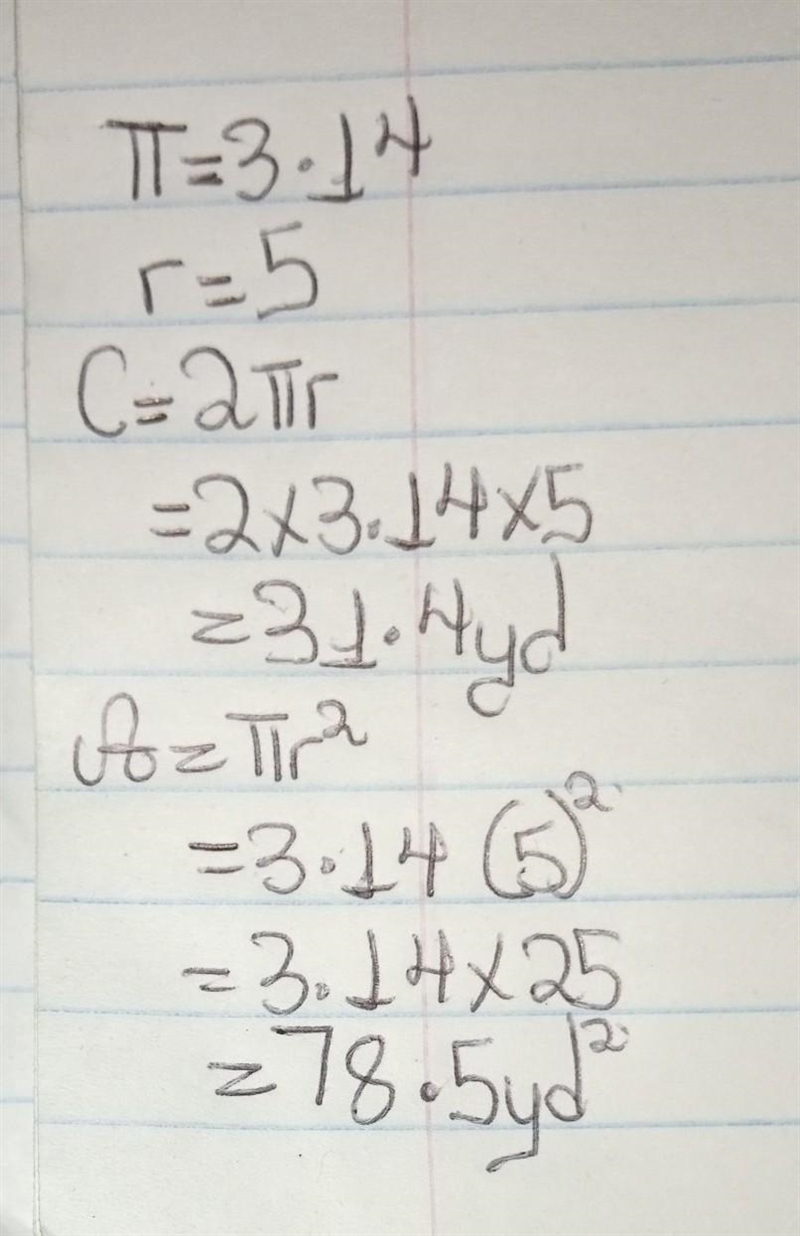 π=3.14
r=5
C=2πr
=2×3.14×5
=31.4yd
A=πr²
=3.14 (5)²
=3.14×25
=78.5yd²